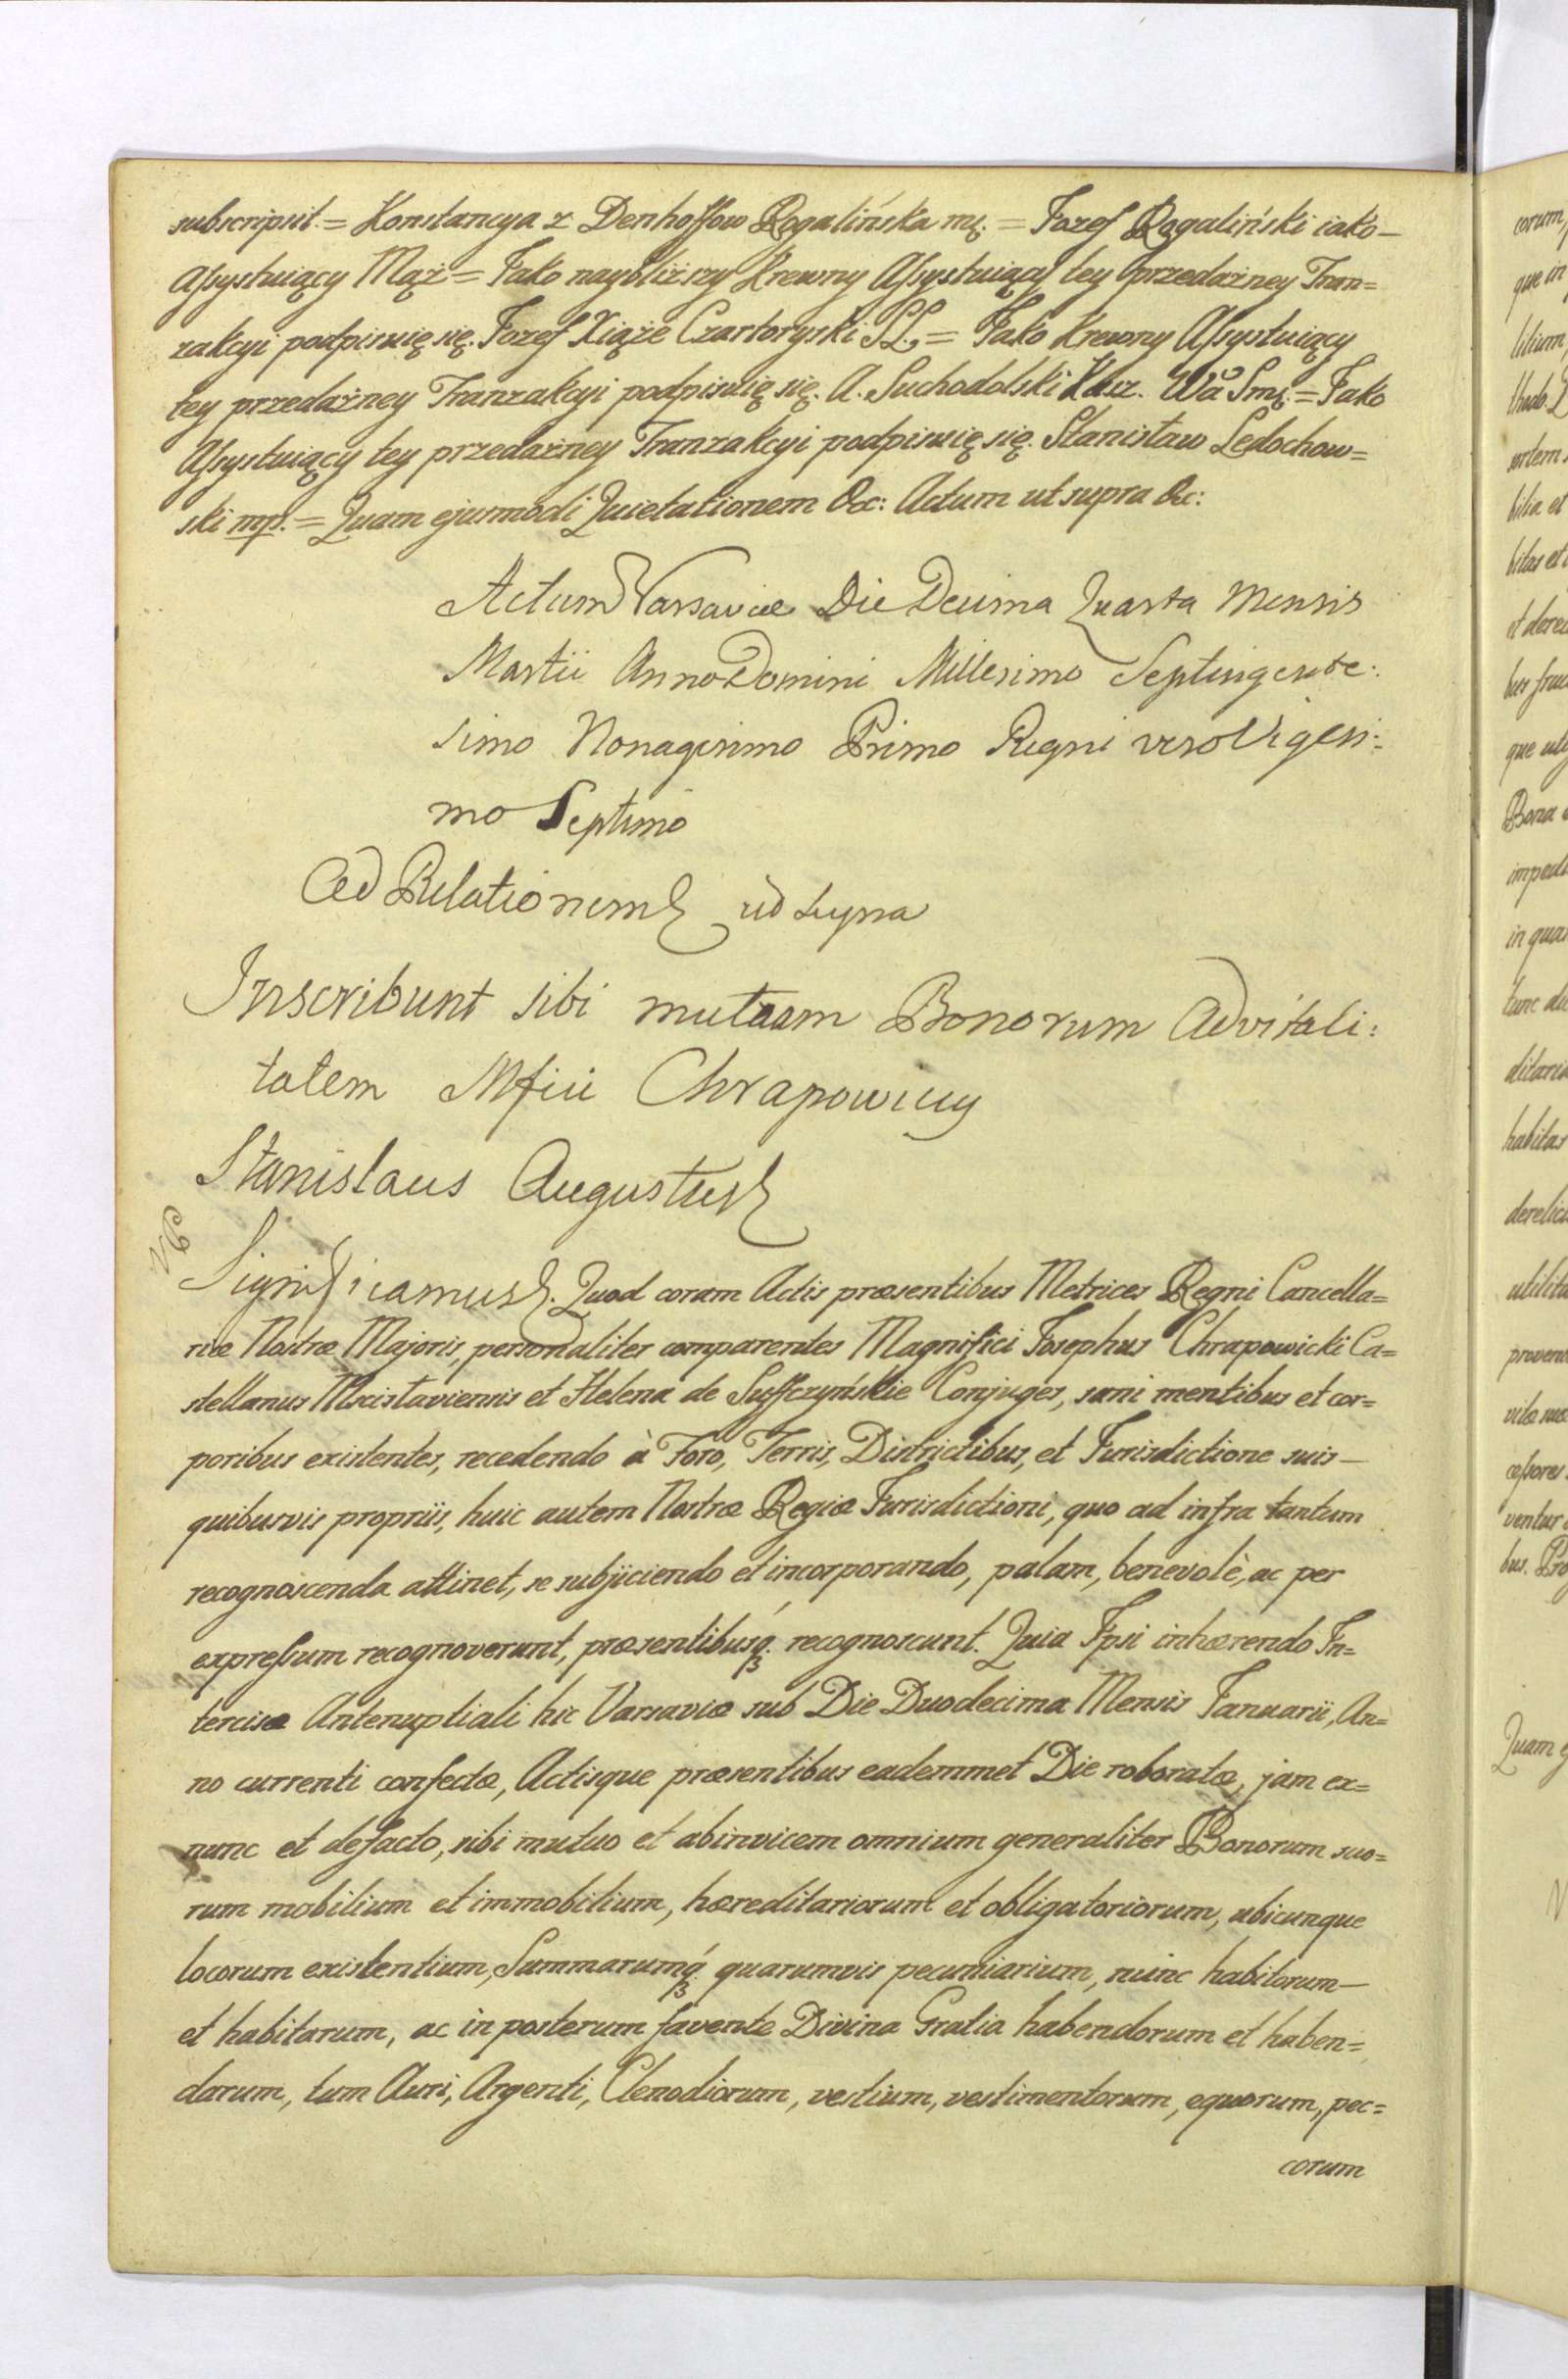 subscripsit = Konstancya z Denhoffow Rogalińska mp. = Jozef Rogaliński iako —
Assystuiący Mąż = Jako naybliższy Krewny Assystuiący tey przedażney Tran=
zakcyi podpisuię się. Jozef Xiąże Czartoryski SL. = Jako Krewny Assystuiący
tey przedażney Tranzakcyi podpisuię się. A. Suchodolski Kasz. = Jako
Assystuiący tey przedażney Tranzakcyi podpisuię się. Stanisław Ledochow=
ski mp. = Quam ejusmodi Quietationem &c: Actum ut supra &c:
Actum Varsaviæ Die Decima Quarta Mensis
Martii Anno Domini Millesimo Septingente:
simo Nonagesimo Primo Regni vero Vigesi:
mo Septimo
Ad Relationem ut supra
Inscribunt sibi mutuam Bonorum Advitali:
tatem Mfici Chrapowiccy
Stanislaus Augustus
Significamus. Quod coram Actis præsentibus Metrices Regni Cancella=
riæ Nostræ Majoris, personaliter comparentes Magnifici Josephus Chrapowicki Ca=
stellanus Mscislaviensis et Helena de Suffczyńskie Conjuges, sani mentibus et cor=
poribus existentes, recedendo à Foro, Terris, Districtibus, et Jurisdictione suis —
quibusvis propriis, huic autem Nostræ Regiæ Jurisdictioni, quo ad infra tantum
recognoscenda attinet, se subjiciendo et incorporando, palam, benevolè, ac per
expressum recognoverunt, præsentibusq. recognoscunt. Quia Ipsi inhærendo In=
tercisæ Antenuptiali hic Varsaviæ sub Die Duodecima Mensis Januarii, An=
no currenti confectæ, Actisque præsentibus eademmet Die roboratæ, jam ex=
nunc et defacto, sibi mutuo et abinvicem omnium generaliter Bonorum suo=
rum mobilium et immobilium, hæreditariorum et obligatoriorum, ubicunque
locorum existentium, Summarumq. quarumvis pecuniarium, nunc habitorum —
et habitarum, ac in posterum favente Divina Gratia habendorum et haben=
darum, tum Auri, Argenti, Clenodiorum, vestium, vestimentorum, equorum, pec=
corum